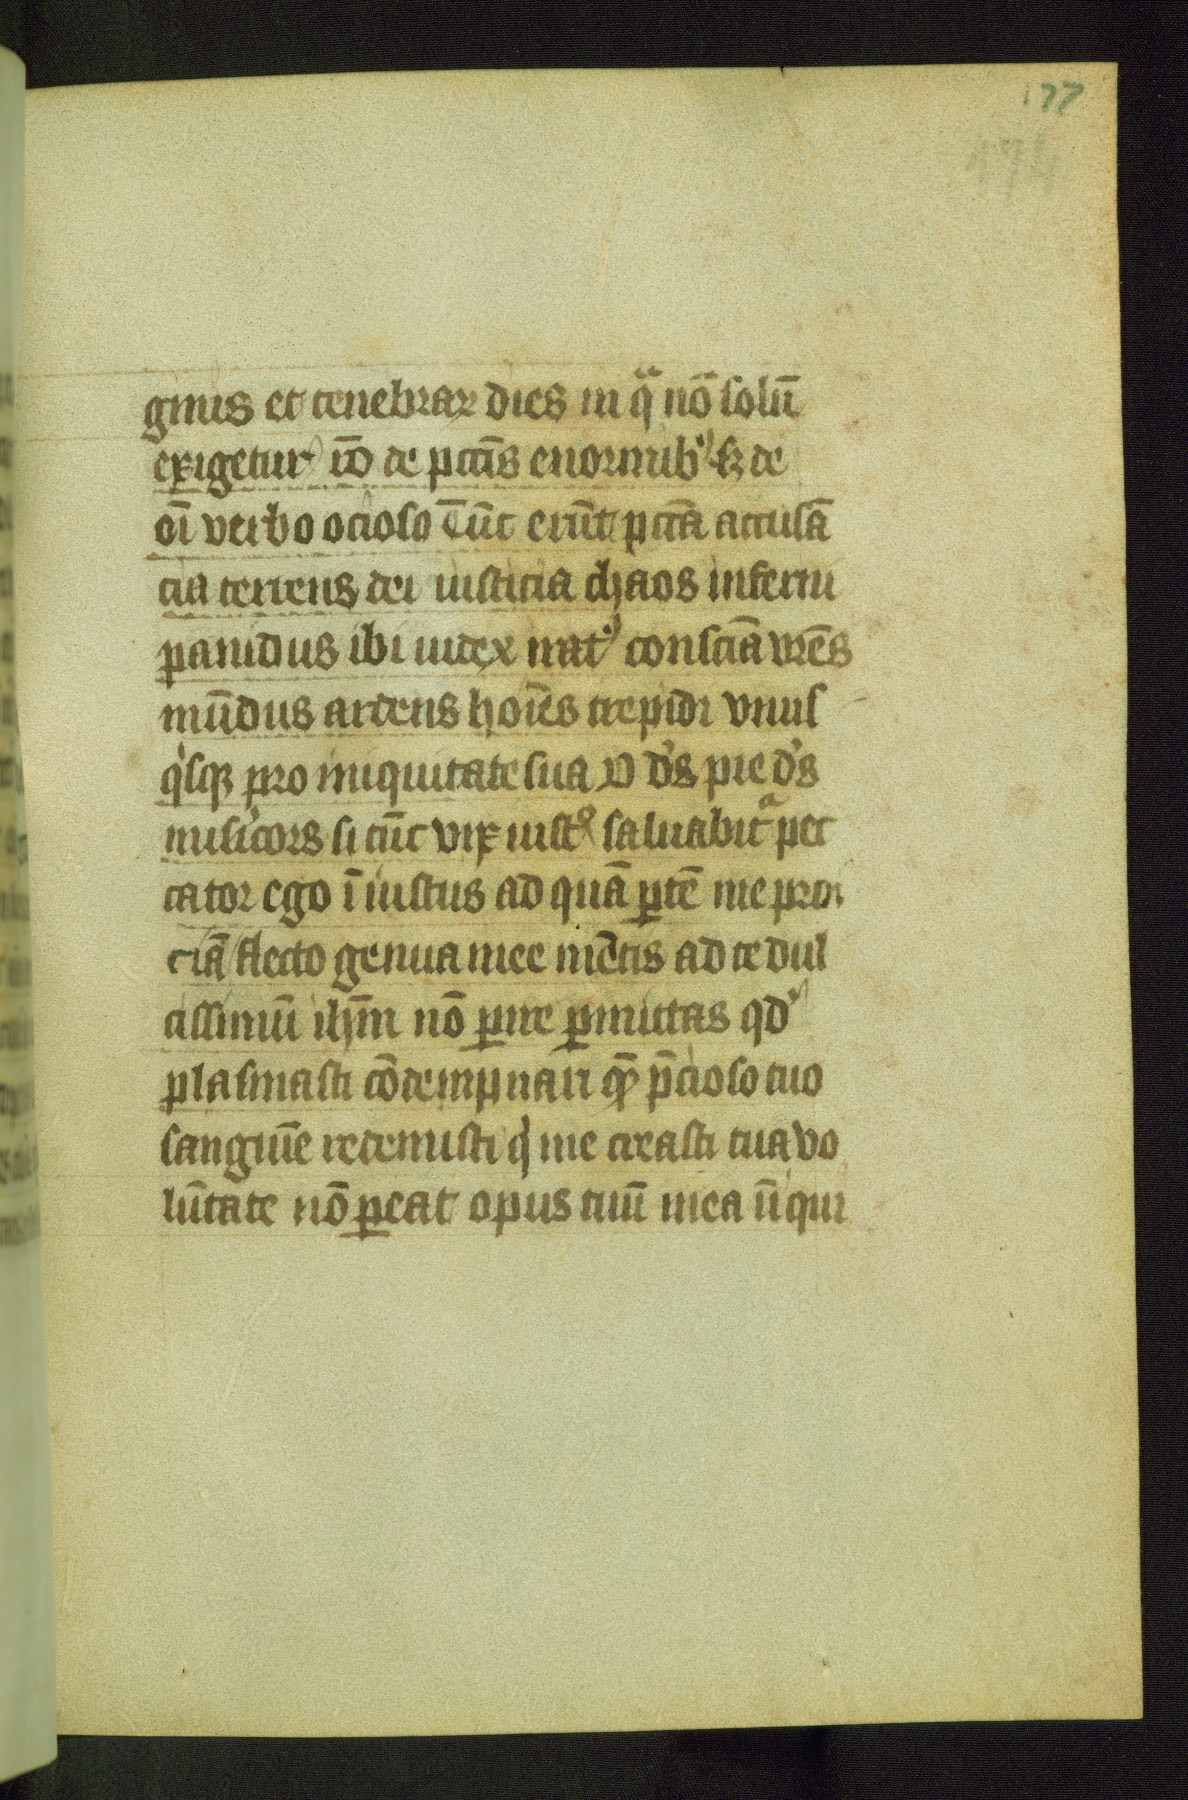 177
174
ginis et tenebrarꝝ dies in qͣ nō solū
exigetur iō de pctīs enormibꝰ sꝫ de
oī verbo ocioso Tūc erūt pctā accusā
cia terrens dei iusticia chaos inferni
pauidus ibi iudex iratꝰ consciā vrēs
mūdus ardens hoīes trepidi vnus
qͥsqꝫ pro iniquitate sua O dn̄s pie dn̄s
miſicors si tūc vix iustꝰ saluabitͣ pec
cator ego īiustus ad quā ꝑtē me proi
ciā flecto genua mee mētis ad te dul
cissimū ihm̄ nō ꝑire ꝑmittas qd
plasmasti cōdempnari qm̄ p̄cioso tuo
sanguīe redemisti qͥ me creasti tua vo
lūtate nō ꝑeat opus tuū mea īiqui